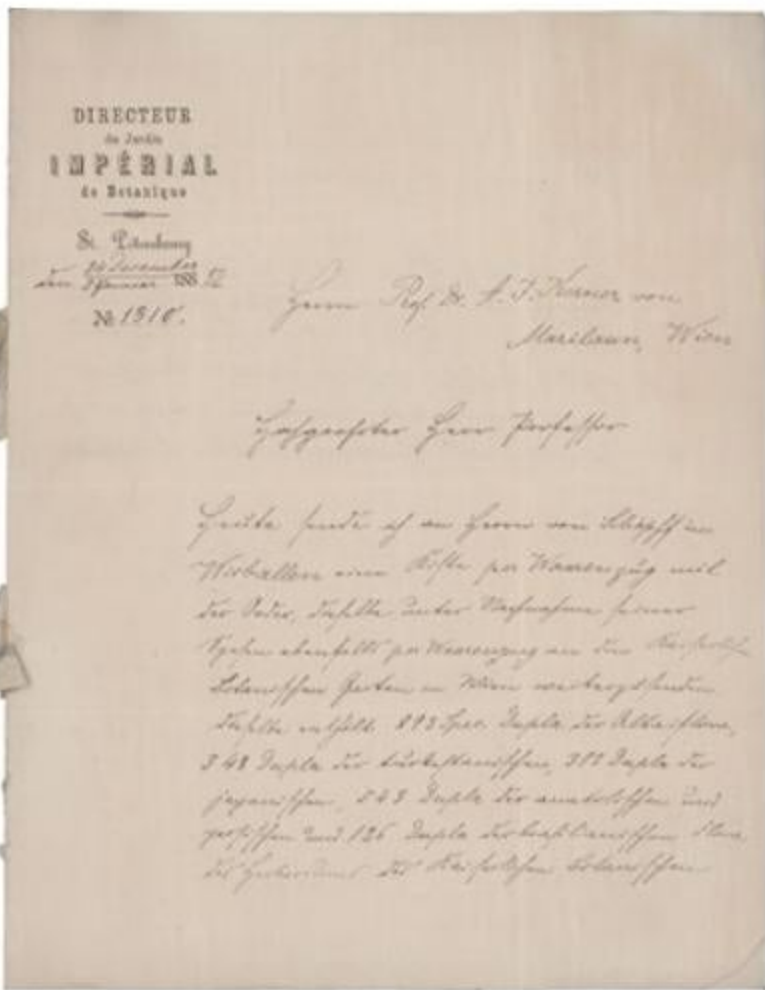 DIRECTEUR
du Jardin
IMPÉRIAL
de Botanique
St. Pétersbourg
den 24 December
5 Januar 188
№ 1310.
Herrn Prof. Dr. A. J. Kerner von
Marilaun, Wien
Hochgeehrter Herr Professor
Heute sende ich an Herrn von in
Wirballen eine Kiste per Waarenzug mit
der Order, dieselbe unter Nachnahme seiner
Spesen ebenfalls per Waarenzug an den Kaiserlich
botanischen Garten in Wien weiterzusenden
dieselbe enthält 893 Spec. Dupla der Altaiflora,
348 Dupla der turkestanischen, 300 Dupla der
japanischen, 543 Dupla der anatolischen und
persischen und 126 Dupla der brasilianischen Flora,
des Herbariums des Kaiserlichen botanischen